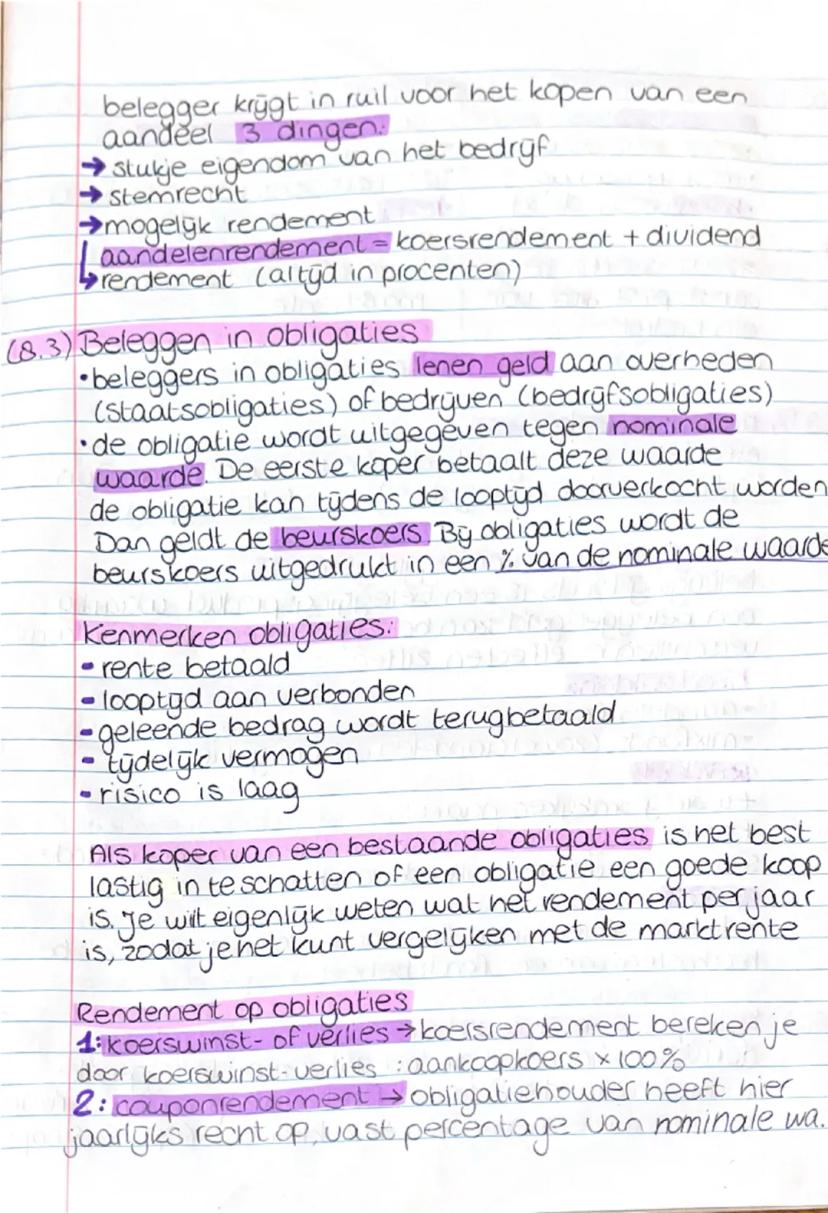 belegger krijgt in ruil voor het kopen van een
aandeel 3 dingen:
→ stukje eigendom van het bedrijf
→ stemrecht
→ mogelijk rendement
aandelenrendement = koersrendement + dividend
↳ rendement (altijd in procenten)
(8.3) Beleggen in obligaties
• beleggers in obligaties lenen geld aan overheden
(staatsobligaties) of bedrijven (bedrijfsobligaties)
• de obligatie wordt uitgegeven tegen nominale
waarde. De eerste koper betaalt deze waarde
de obligatie kan tijdens de looptijd doorverkocht worden
Dan geldt de beurskoers. Bij obligaties wordt de
beurskoers uitgedrukt in een % van de nominale waarde
Kenmerken obligaties:
- rente betaald
- looptijd aan verbonden
- geleende bedrag wordt terugbetaald
- tijdelijk vermogen
- risico is laag
Als koper van een bestaande obligaties is het best
lastig in te schatten of een obligatie een goede koop
is. Je wilt eigenlijk weten wat het rendement per jaar
is, zodat je het kunt vergelijken met de marktrente
Rendement op obligaties
1: koerswinst- of verlies → koersrendement bereken je
door koerswinst-verlies : aankoopkoers × 100%
2: couponrendement → obligatiehouder heeft hier
jaarlijks recht op, vast percentage van nominale wa.